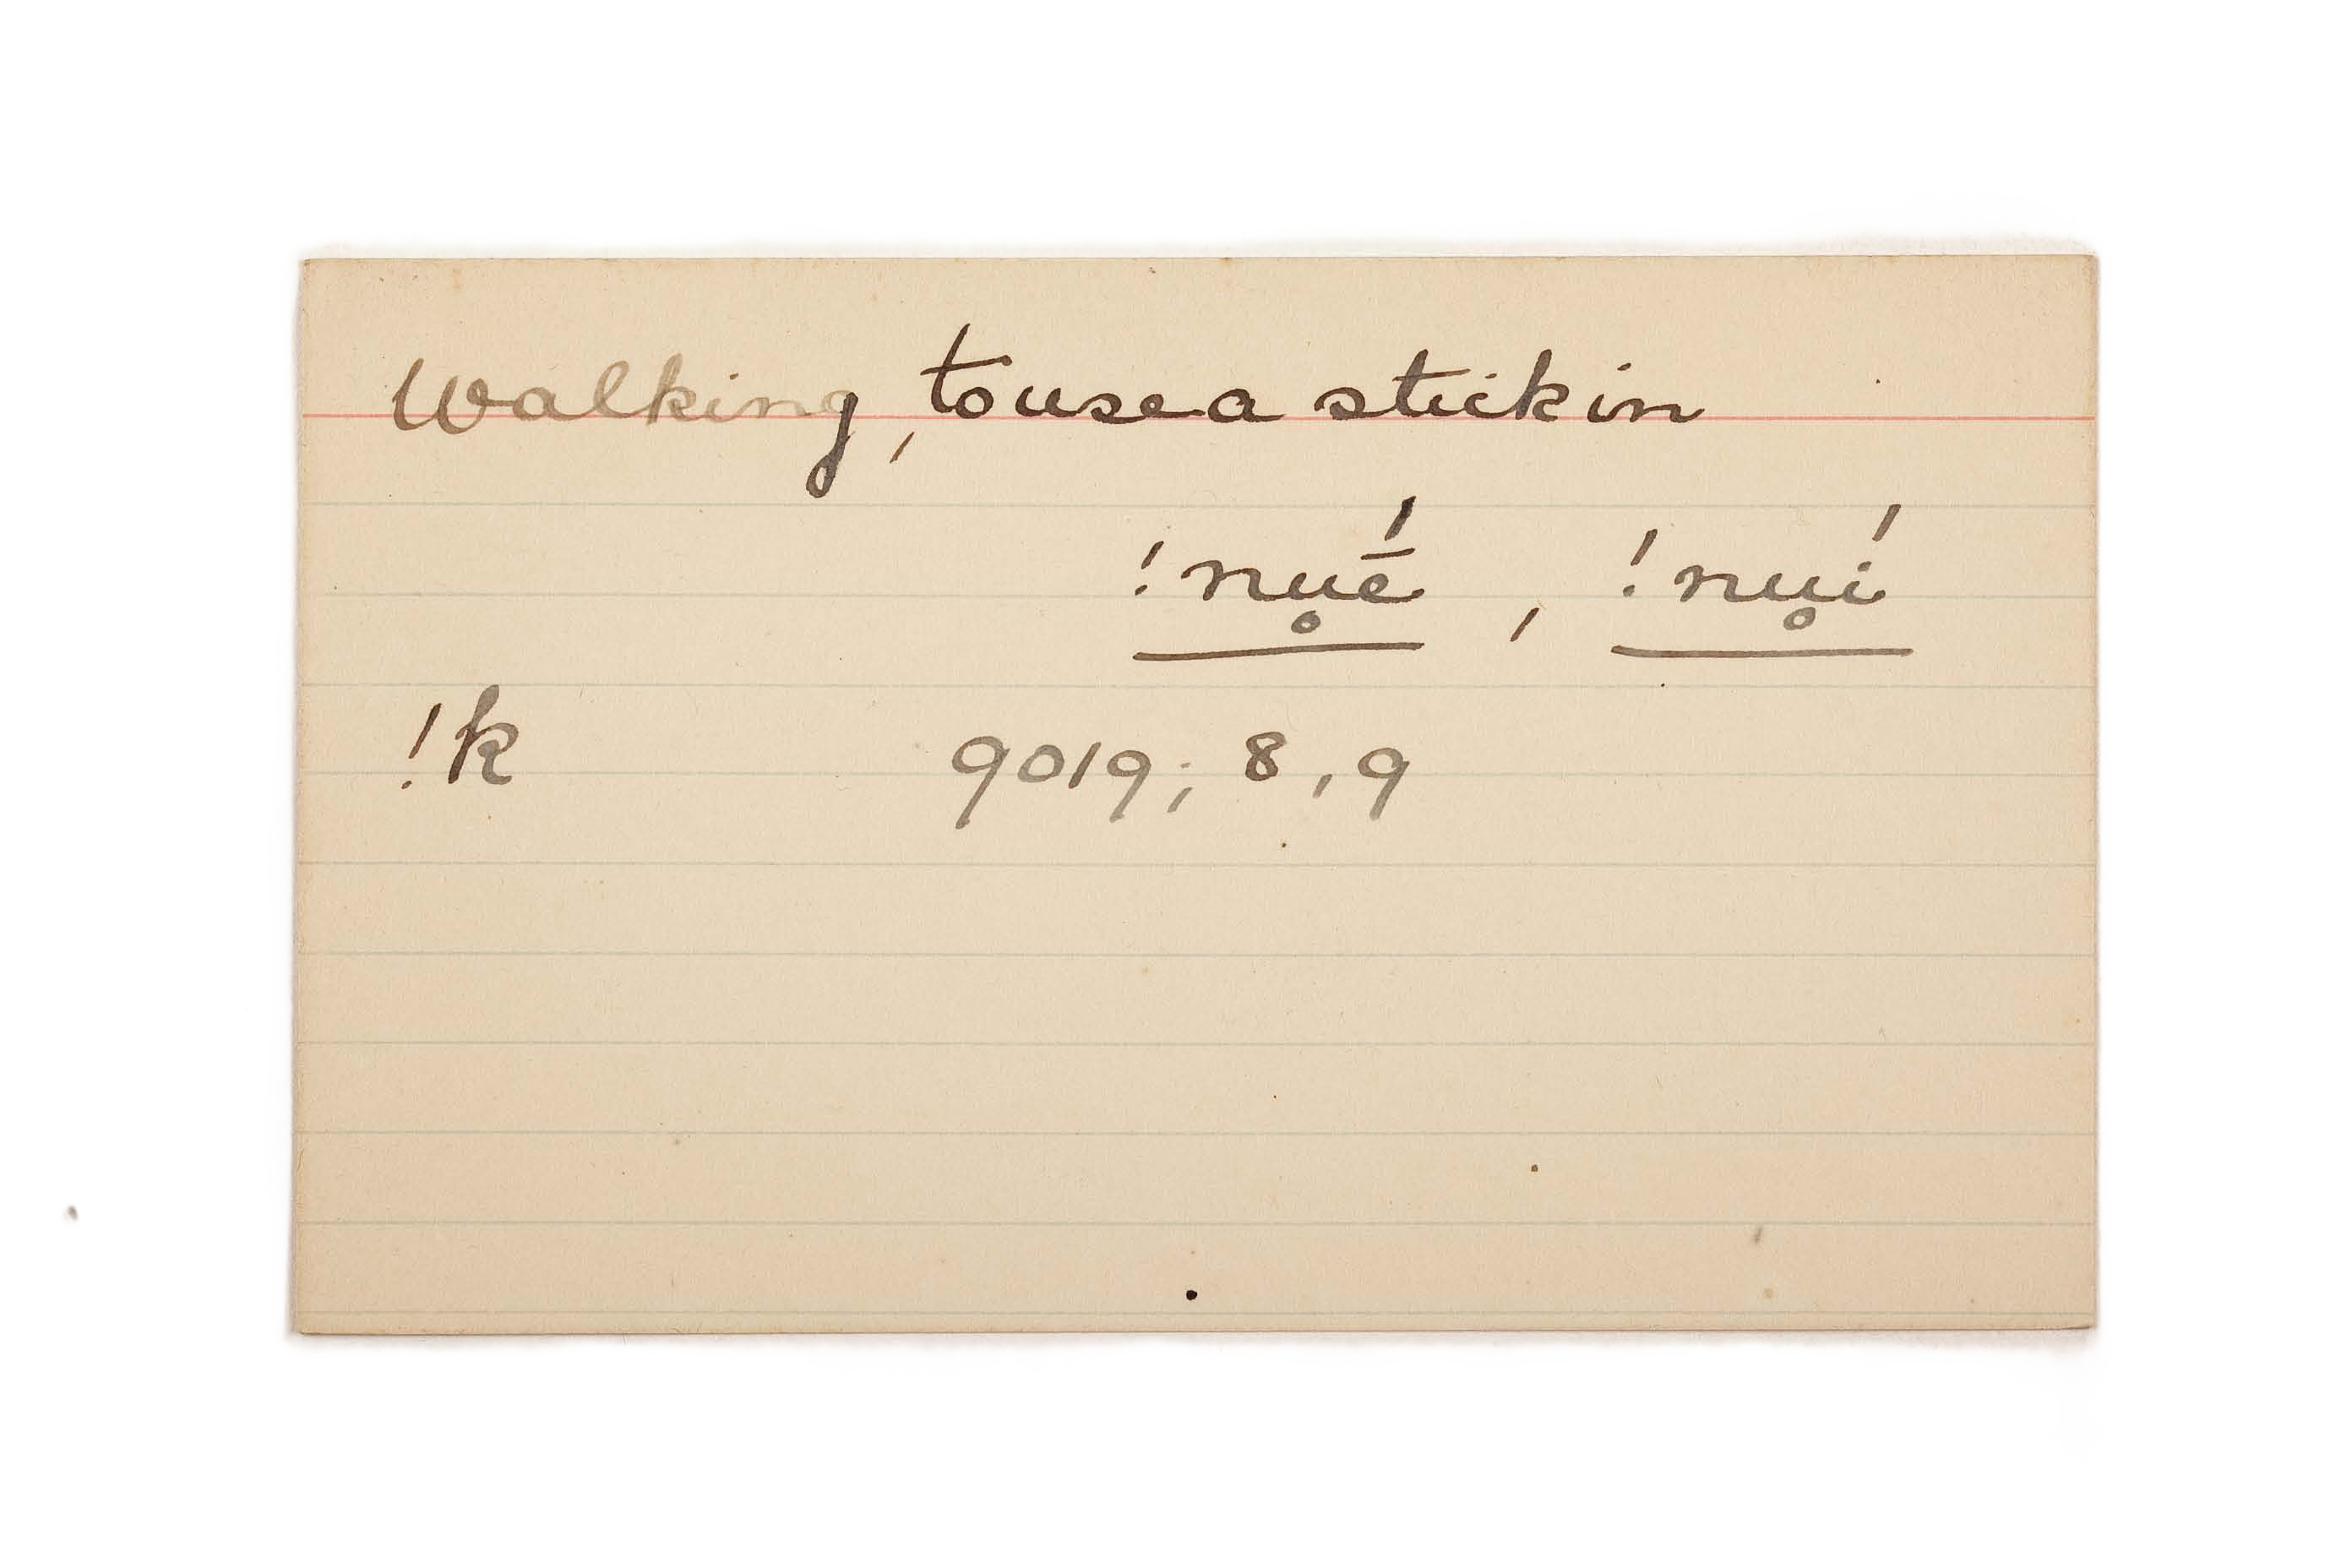 Walking, to use a stick in
!nu̥ḗ, !nu̥í
!k 9019; 8, 9